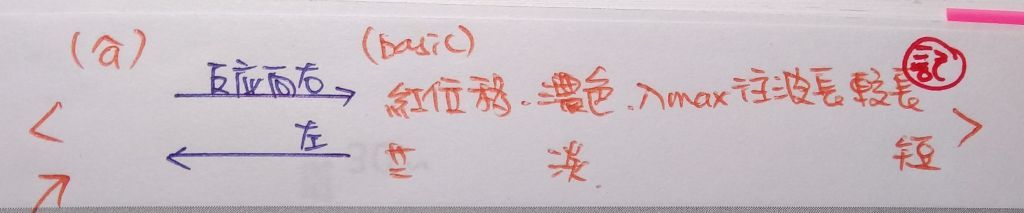 (â) (basic)
反应面右 → 紅位移.濃色.λmax往波長較長 記
< >
左 ← 淡 短
↗